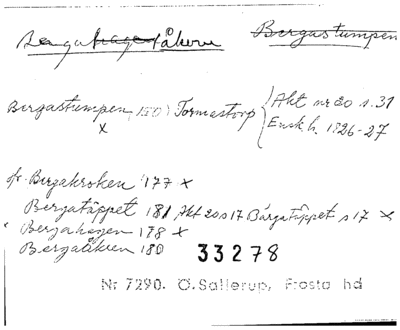 Bergahage åkern Bergastumpen
Bergastumpen (150) Tormastorp { Akt nr 20 s. 31
x Ensk h. 1826-27
jfr. Bergakroken 177 x
Bergatäppet 181 Akt 20 s 17 Bärgatäppet s 17 x
" Bergahagen 178 x
Bergalökken 180 33278
Nr 7290. Ö. Sallerup, Frosta hd